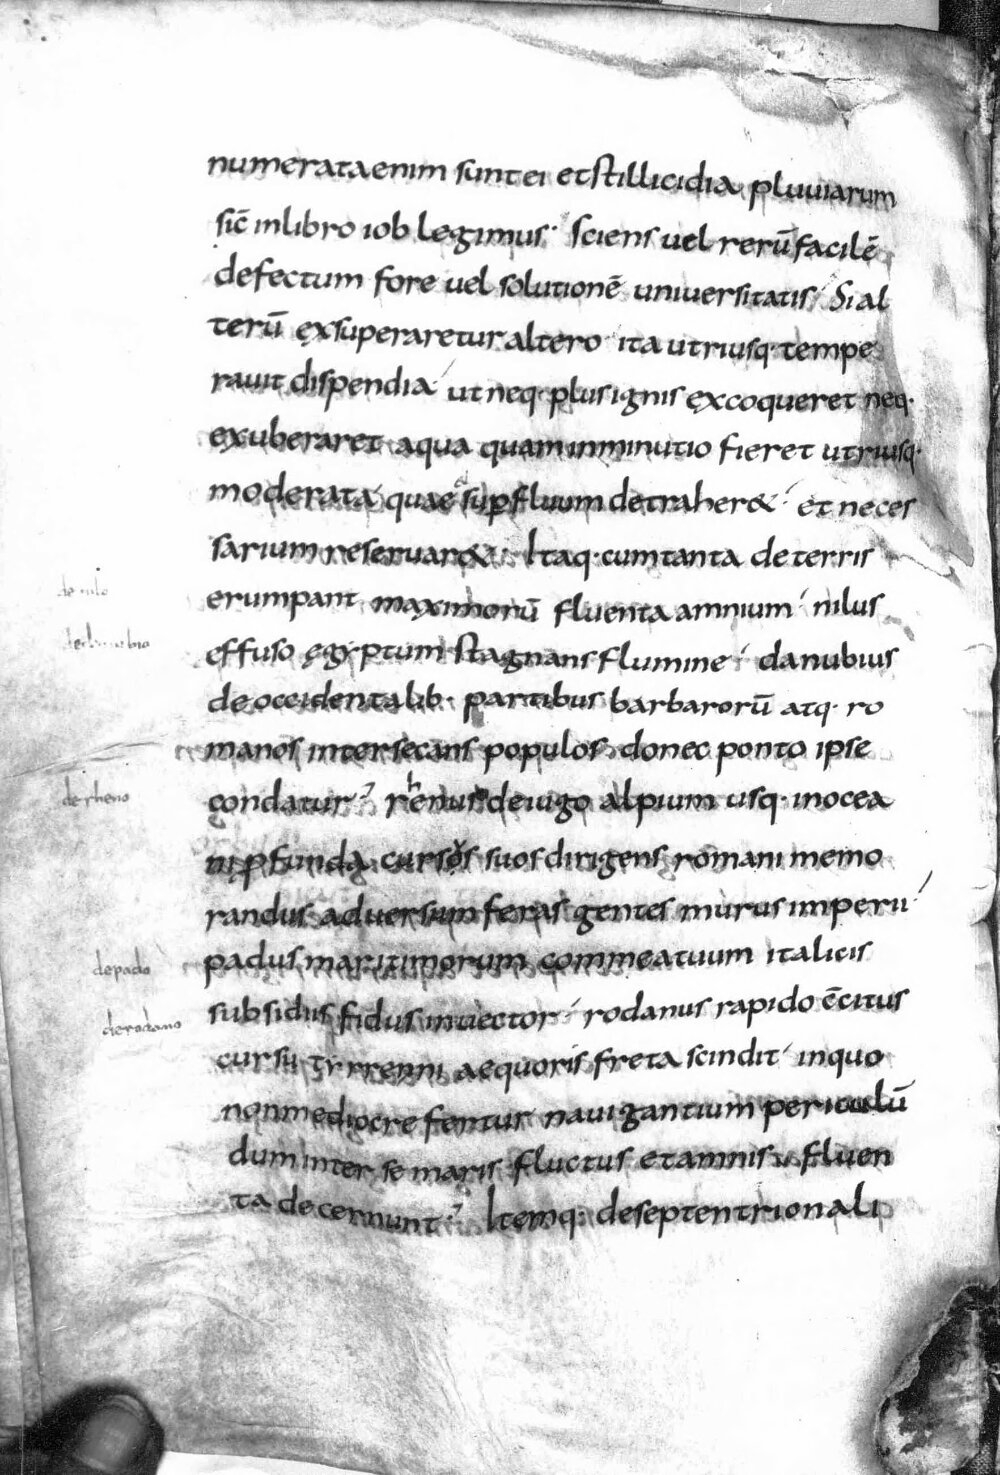 numerata enim sunt ei et stillicidia pluuiarum
sic̄ in libro iob legimus· Sciens uel rerū facilē
defectum fore uel solutionē uniuersitatis· Si al
terū exsuperaretur altero· ita utriusq· tempe
rauit dispendia· ut neq· plus ignis excoqueret neq·
exuberaret aqua quam inminutio fieret utriusq·
moderata· quae sup̱fluum detraher& · et neces
sarium reseruar& · Itaq· cum tanta de terris
erumpant maximorū fluenta amnium· nilus
de nilo
effuso ęgyptum stagnans flumine· danubius
de danubio
de occidentalib· partibus barbarorū atq· ro
manos intersecans populos donec ponto ipse
condatur· rhenus de iugo alpium usq· in ocea
de rheno
ni p̱funda cursos suos dirigens romani memo
randus aduersum feras gentes murus imperii·
padus maritimorum commeatuum italicis
de pado
subsidiis fidus inuector· rodanus rapido c̄citus
de rodano
cursu tyrrenni aequoris freta scindit· in quo
non mediocre fertur nauigantium periculū
dum inter se maris fluctus et amnis fluen
ta decernunt· Itemq· de septentrionali